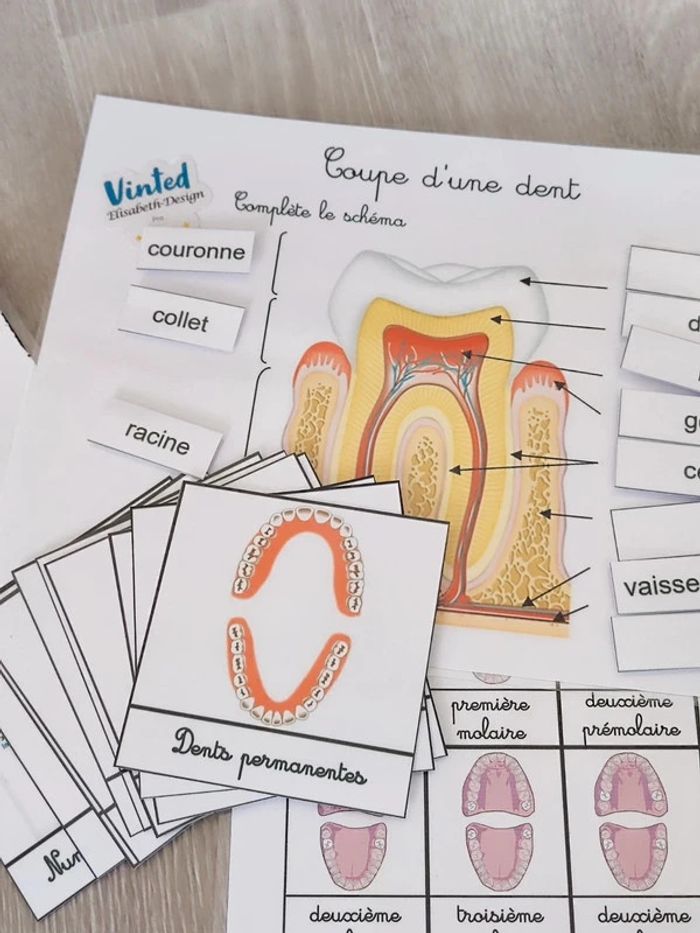 Coupe d'une dent
Vinted
Elisabeth-Design
Pro
Complète le schéma
couronne
collet
racine
d
g
c
vaisse
Dents permanentes
Nur
première
molaire
deuxième
prémolaire
deuxième
troisième
deuxième